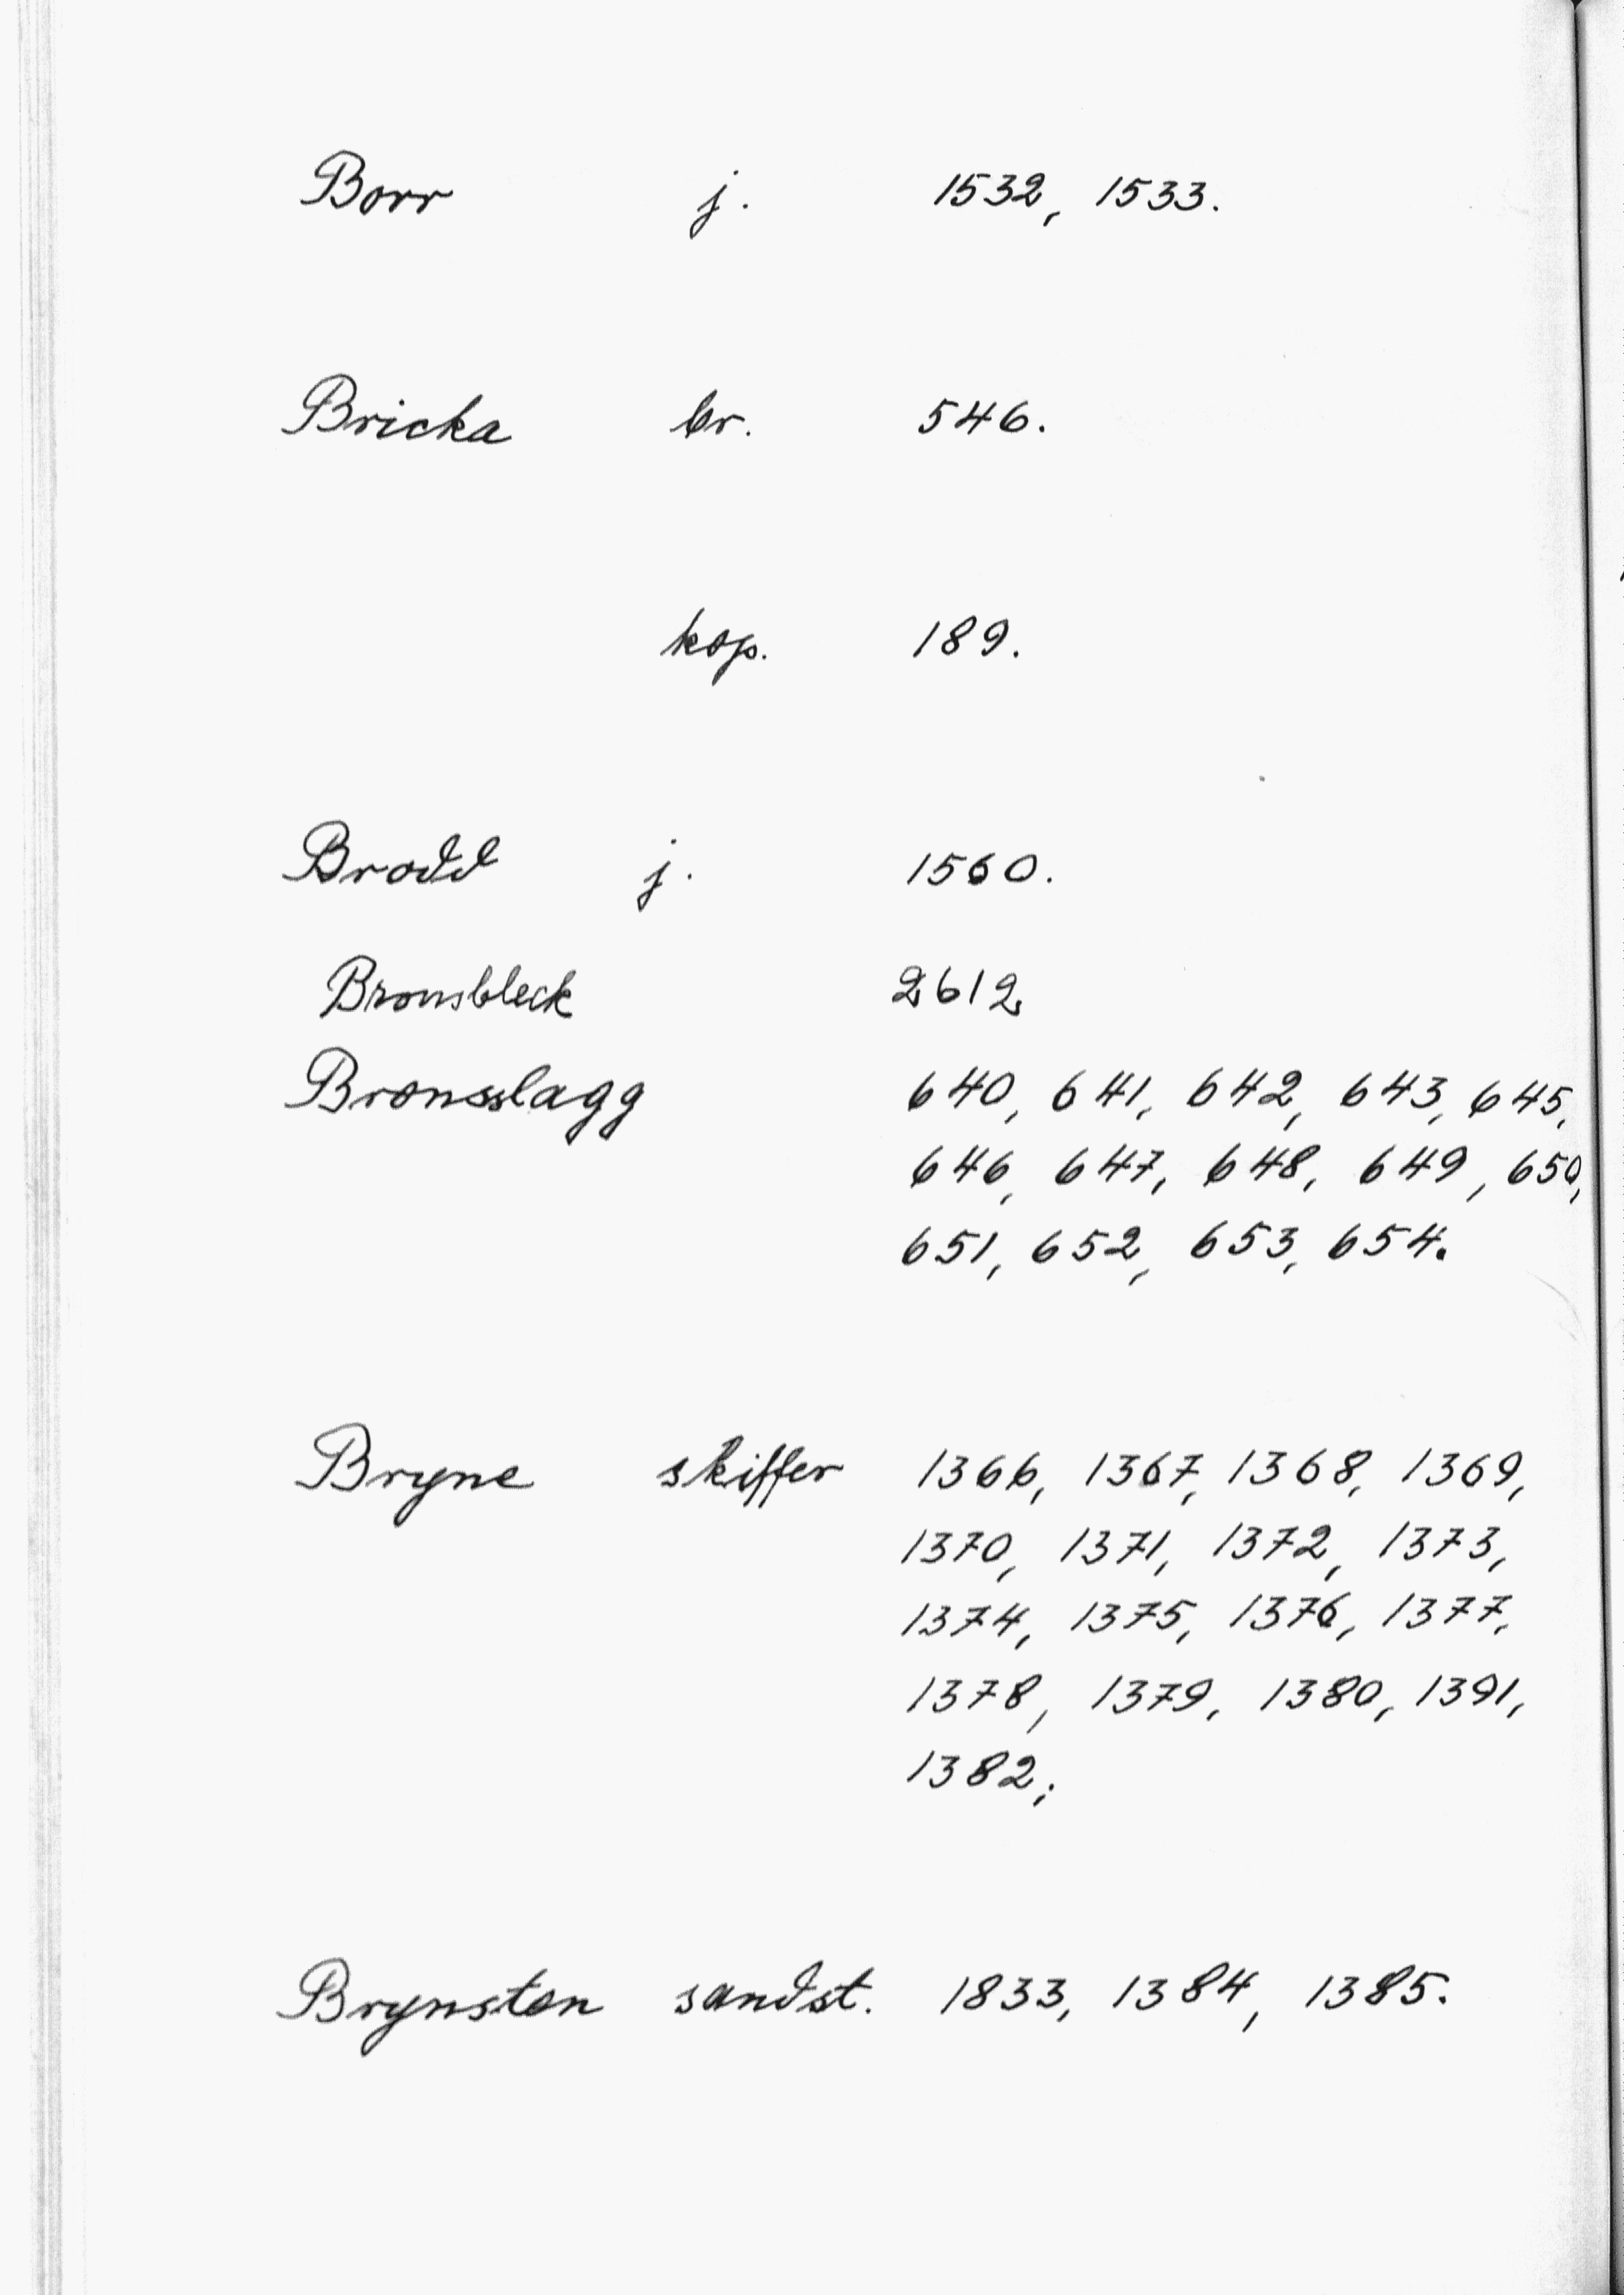 Borr j. 1532, 1533.
Bricka br. 546.
kop. 189.
Brodd j. 1560.
Bronsbleck 2612
Bronsslagg 640, 641, 642, 643, 645,
646, 647, 648, 649, 650,
651, 652, 653, 654.
Bryne skiffer 1366, 1367, 1368, 1369,
1370, 1371, 1372, 1373,
1374, 1375, 1376, 1377,
1378, 1379, 1380, 1391,
1382;
Brynsten sandst. 1833, 1384, 1385.